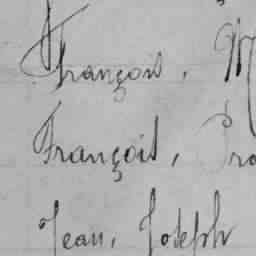 François, M
François, Pro
Jean, Joseph